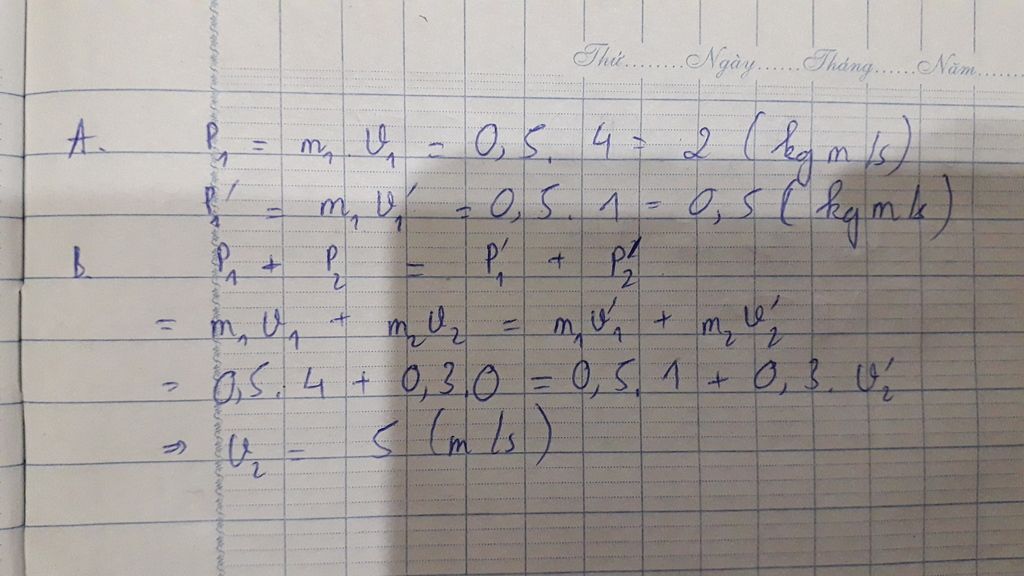 Thứ........Ngày......Tháng......Năm......
A. P₁ = m₁.v₁ = 0,5. 4 = 2 (kg m/s)
P₁' = m₁v₁' = 0,5. 1 = 0,5 (kg m/s)
B. P₁ + P₂ = P₁' + P₂'
= m₁v₁ + m₂v₂ = m₁v₁' + m₂v₂'
= 0,5. 4 + 0,3.0 = 0,5. 1 + 0,3. v₂'
⇒ v₂ = 5 (m/s)